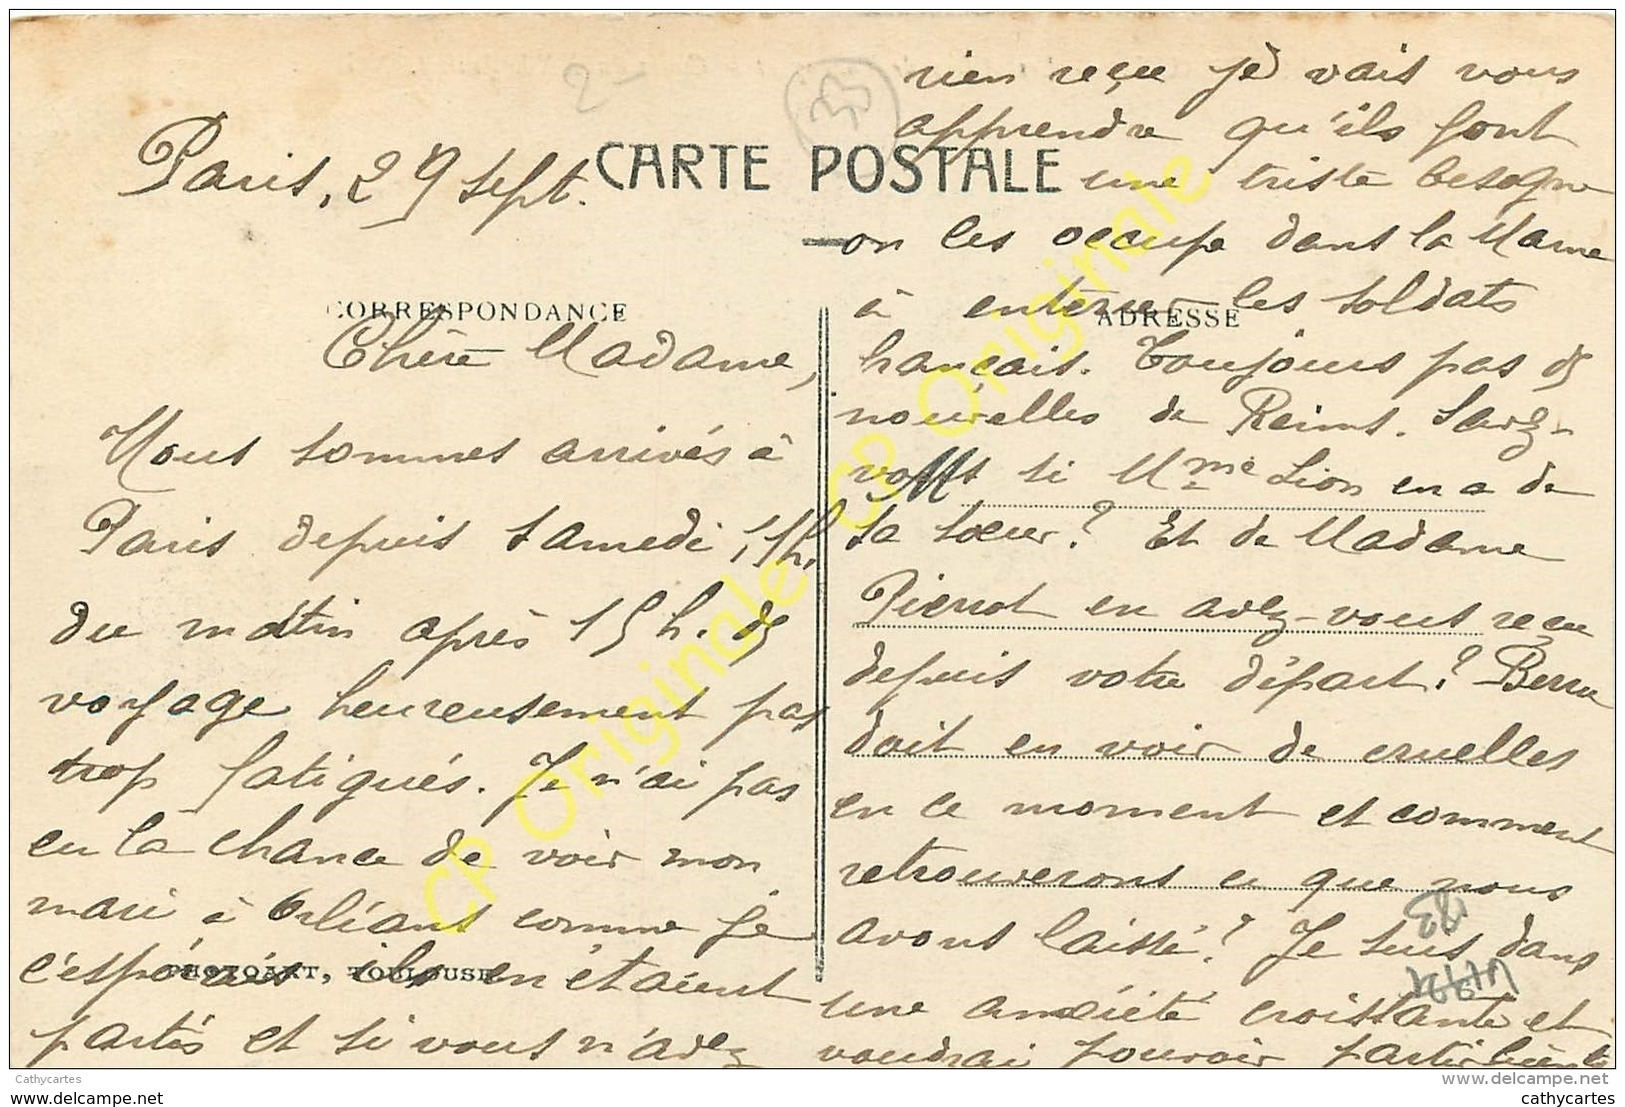 2-
CARTE POSTALE
Paris, 29 sept.
CORRESPONDANCE
Chère Madame,
Nous sommes arrivés à
Paris depuis samedi, 11h.
du matin après 15 h. de
voyage heureusement pas
trop fatigués. Je n'ai pas
eu la chance de voir mon
mari à Orléans comme je
l'espérais ils en étaient
PHOTOART, TOULOUSE
partis et si vous n'avez
rien reçu je vais vous
apprendre qu'ils font
une triste besogne
on les occupe dans la Marne
à enterrer les soldats
ADRESSE
français. Toujours pas de
nouvelles de Reims. Savez-
vous si Mme Lion en a de
sa sœur? Et de Madame
Pierrot en avez-vous reçu
depuis votre départ? Berru
doit en voir de cruelles
en ce moment et comment
retrouverons ce que nous
avons laissé? Je suis dans
une anxiété croissante et
voudrai pouvoir partir
CP Originale CP Originale
Cathycartes
www.delcampe.net
cathycartes
cathycartes